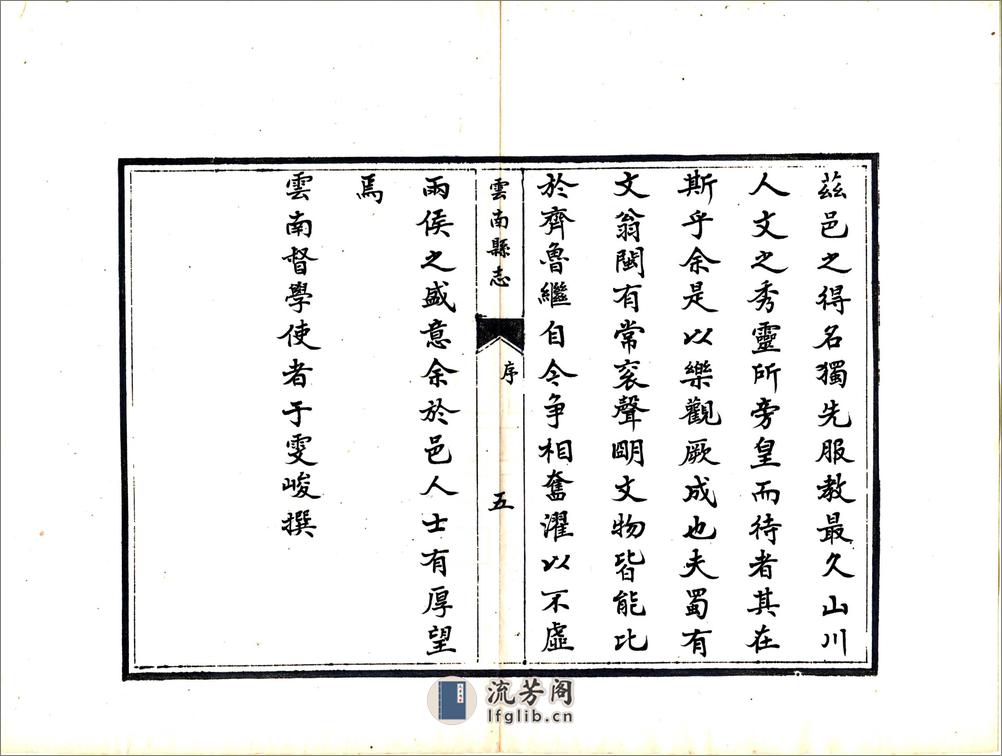 茲邑之得名獨先服教最久山川
人文之秀靈所旁皇而待者其在
斯乎余是以樂觀厥成也夫蜀有
文翁閩有常袞聲明文物皆能比
於齊魯繼自今争相奮濯以不虛
雲南縣志
序
五
兩侯之盛意余於邑人士有厚望
焉
雲南督學使者于雯峻撰
流芳阁
lfglib.cn